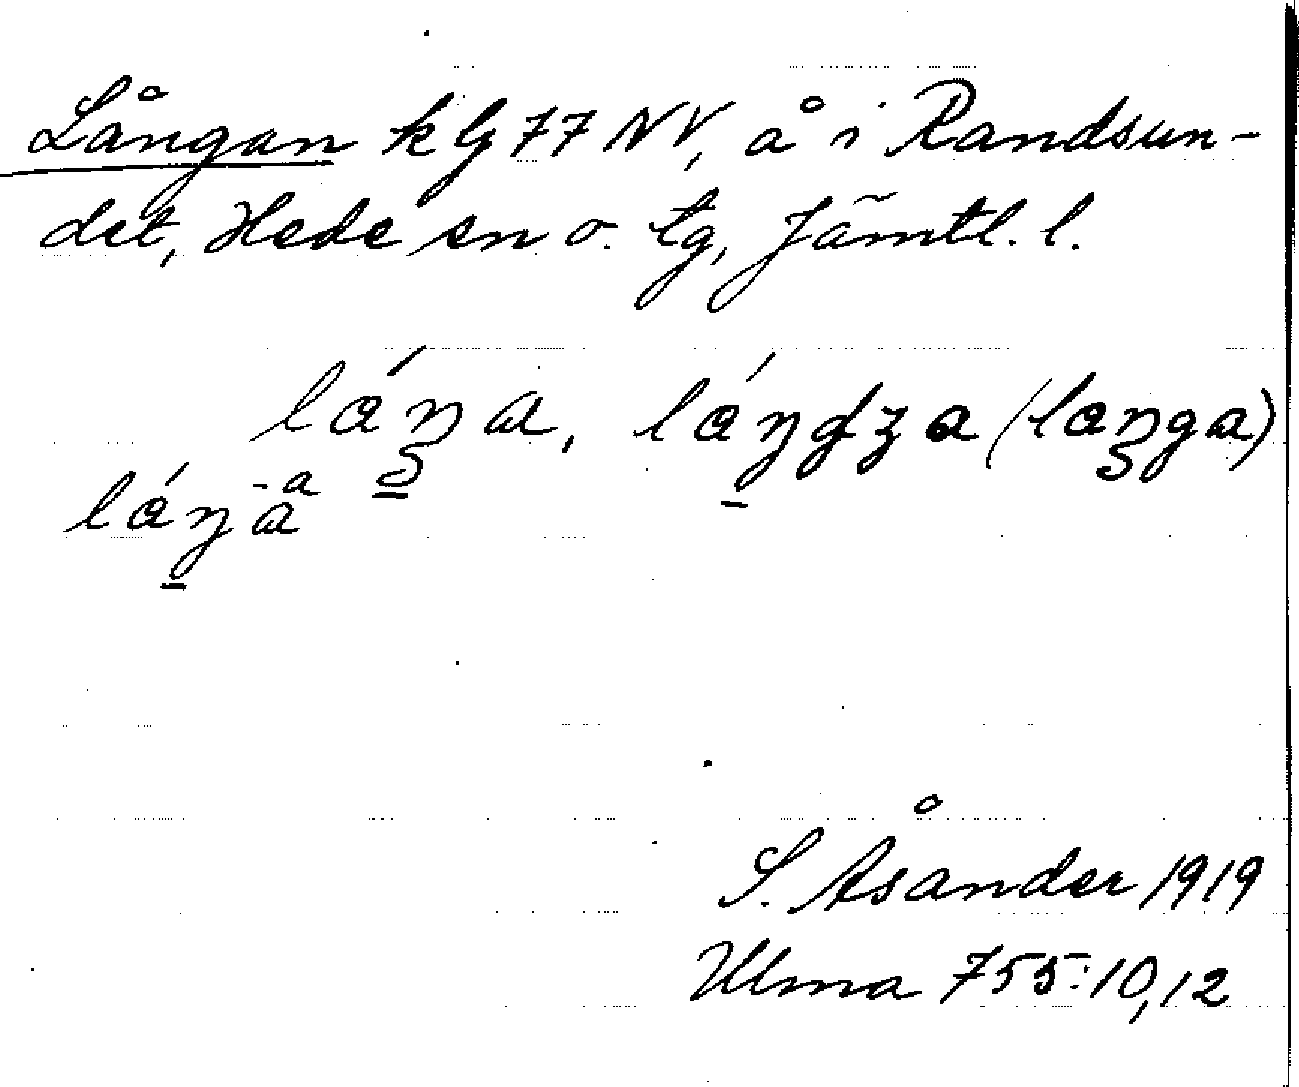 Långan kG 77 NV, å i Randsun-
det, Hede sn o. tg, Jämtl. l.
láŋa, láŋdʒa (laŋga)
láŋāᵃ
S. Åsander 1919
Ulma 755:10,12